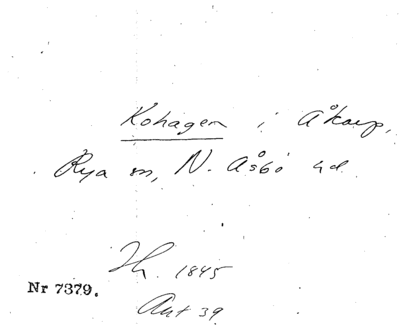 Kohagen i Åkarp,
Rya sn, N. Åsbo hd
Th. 1845
Nr 7379.
Akt 39